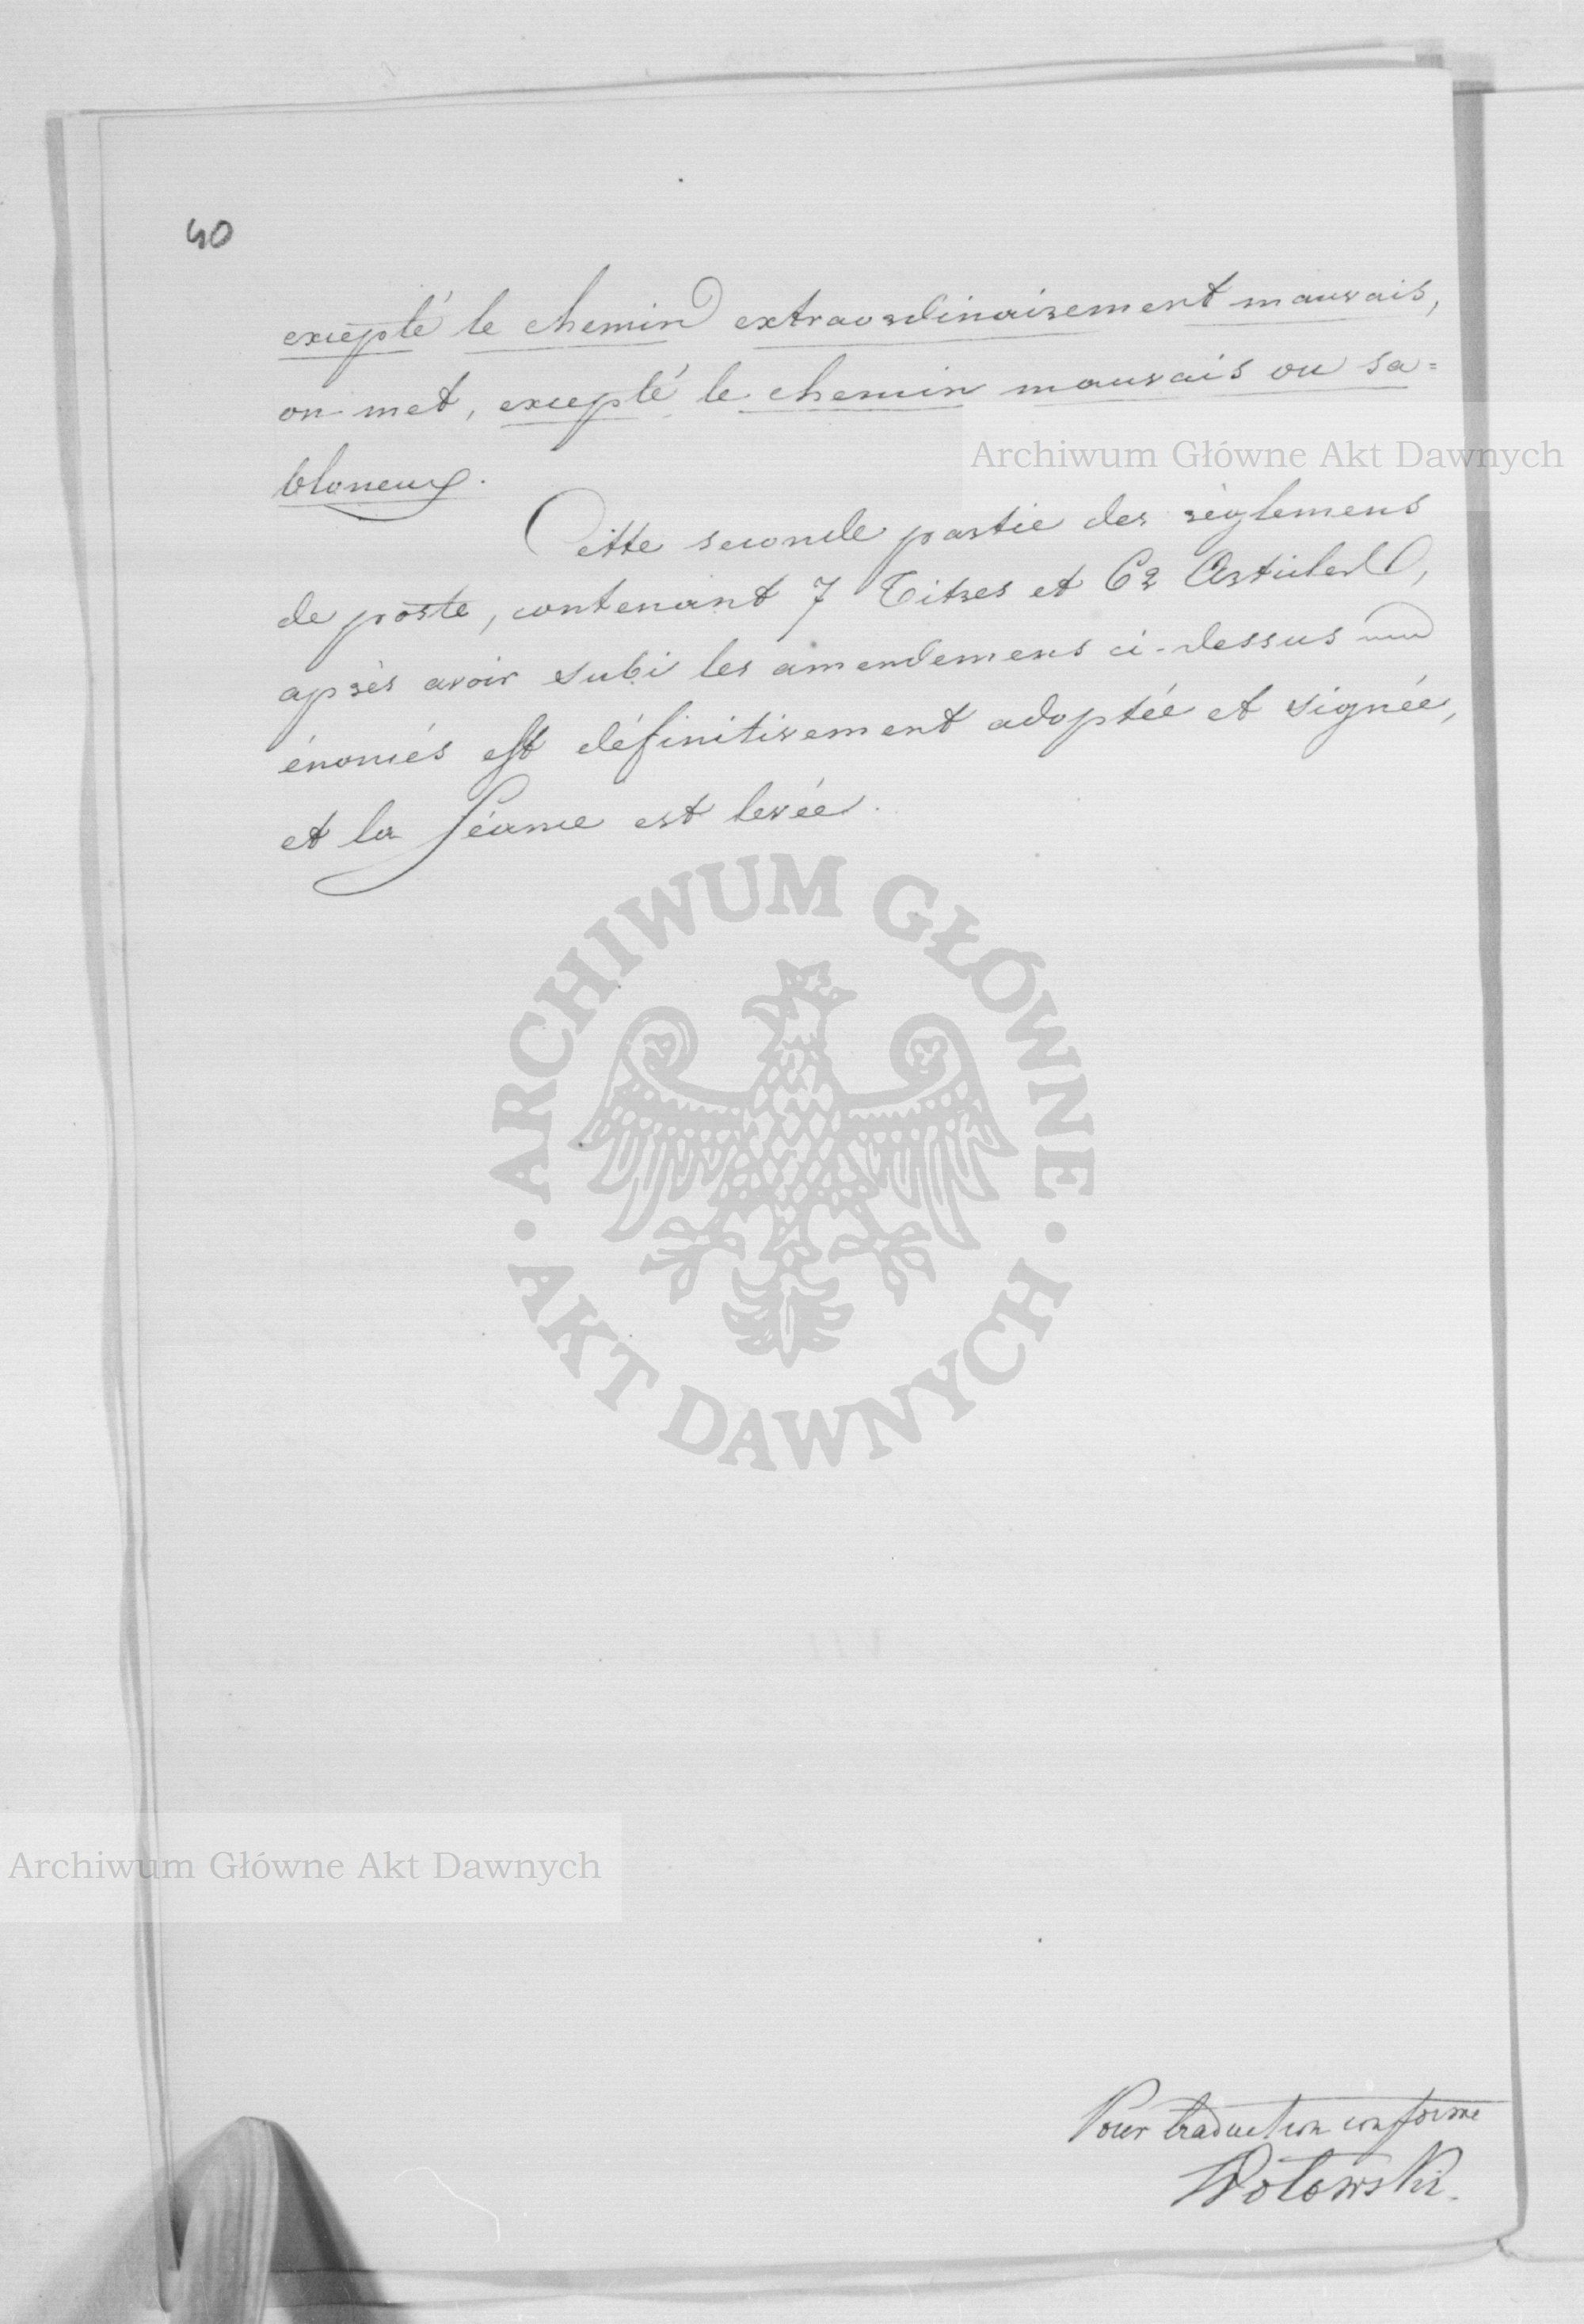 40
excepté le chemin extraordinairement mauvais,
on met, excepté le chemin mauvais ou sa=
bloneux.
Archiwum Główne Akt Dawnych
Cette seconde partie des règlemens
de poste, contenant 7 Titres et 62 Articles,
après avoir subi les amendemens ci-dessus
énoncés est définitivement adoptée et signée,
et la Séance est levée.
ARCHIWUM GŁÓWNE
AKT DAWNYCH
Archiwum Główne Akt Dawnych
Pour traduction conforme
Wołowski.